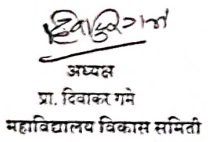 अध्यक्ष
प्रा. दिवाकर गमे
महाविद्यालय विकास समिती